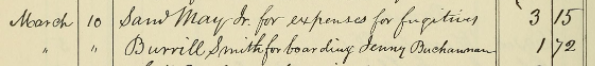 March 10 Saml May Jr. for expenses for fugitives 3 15
" " Burrill Smith for boarding Jenny Buchannan 1 72